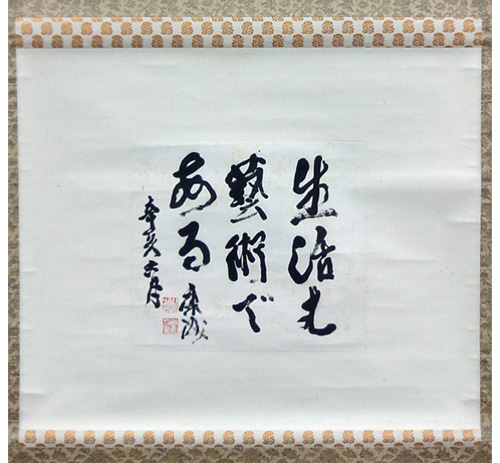 生活も
藝術で
ある
辛亥六月